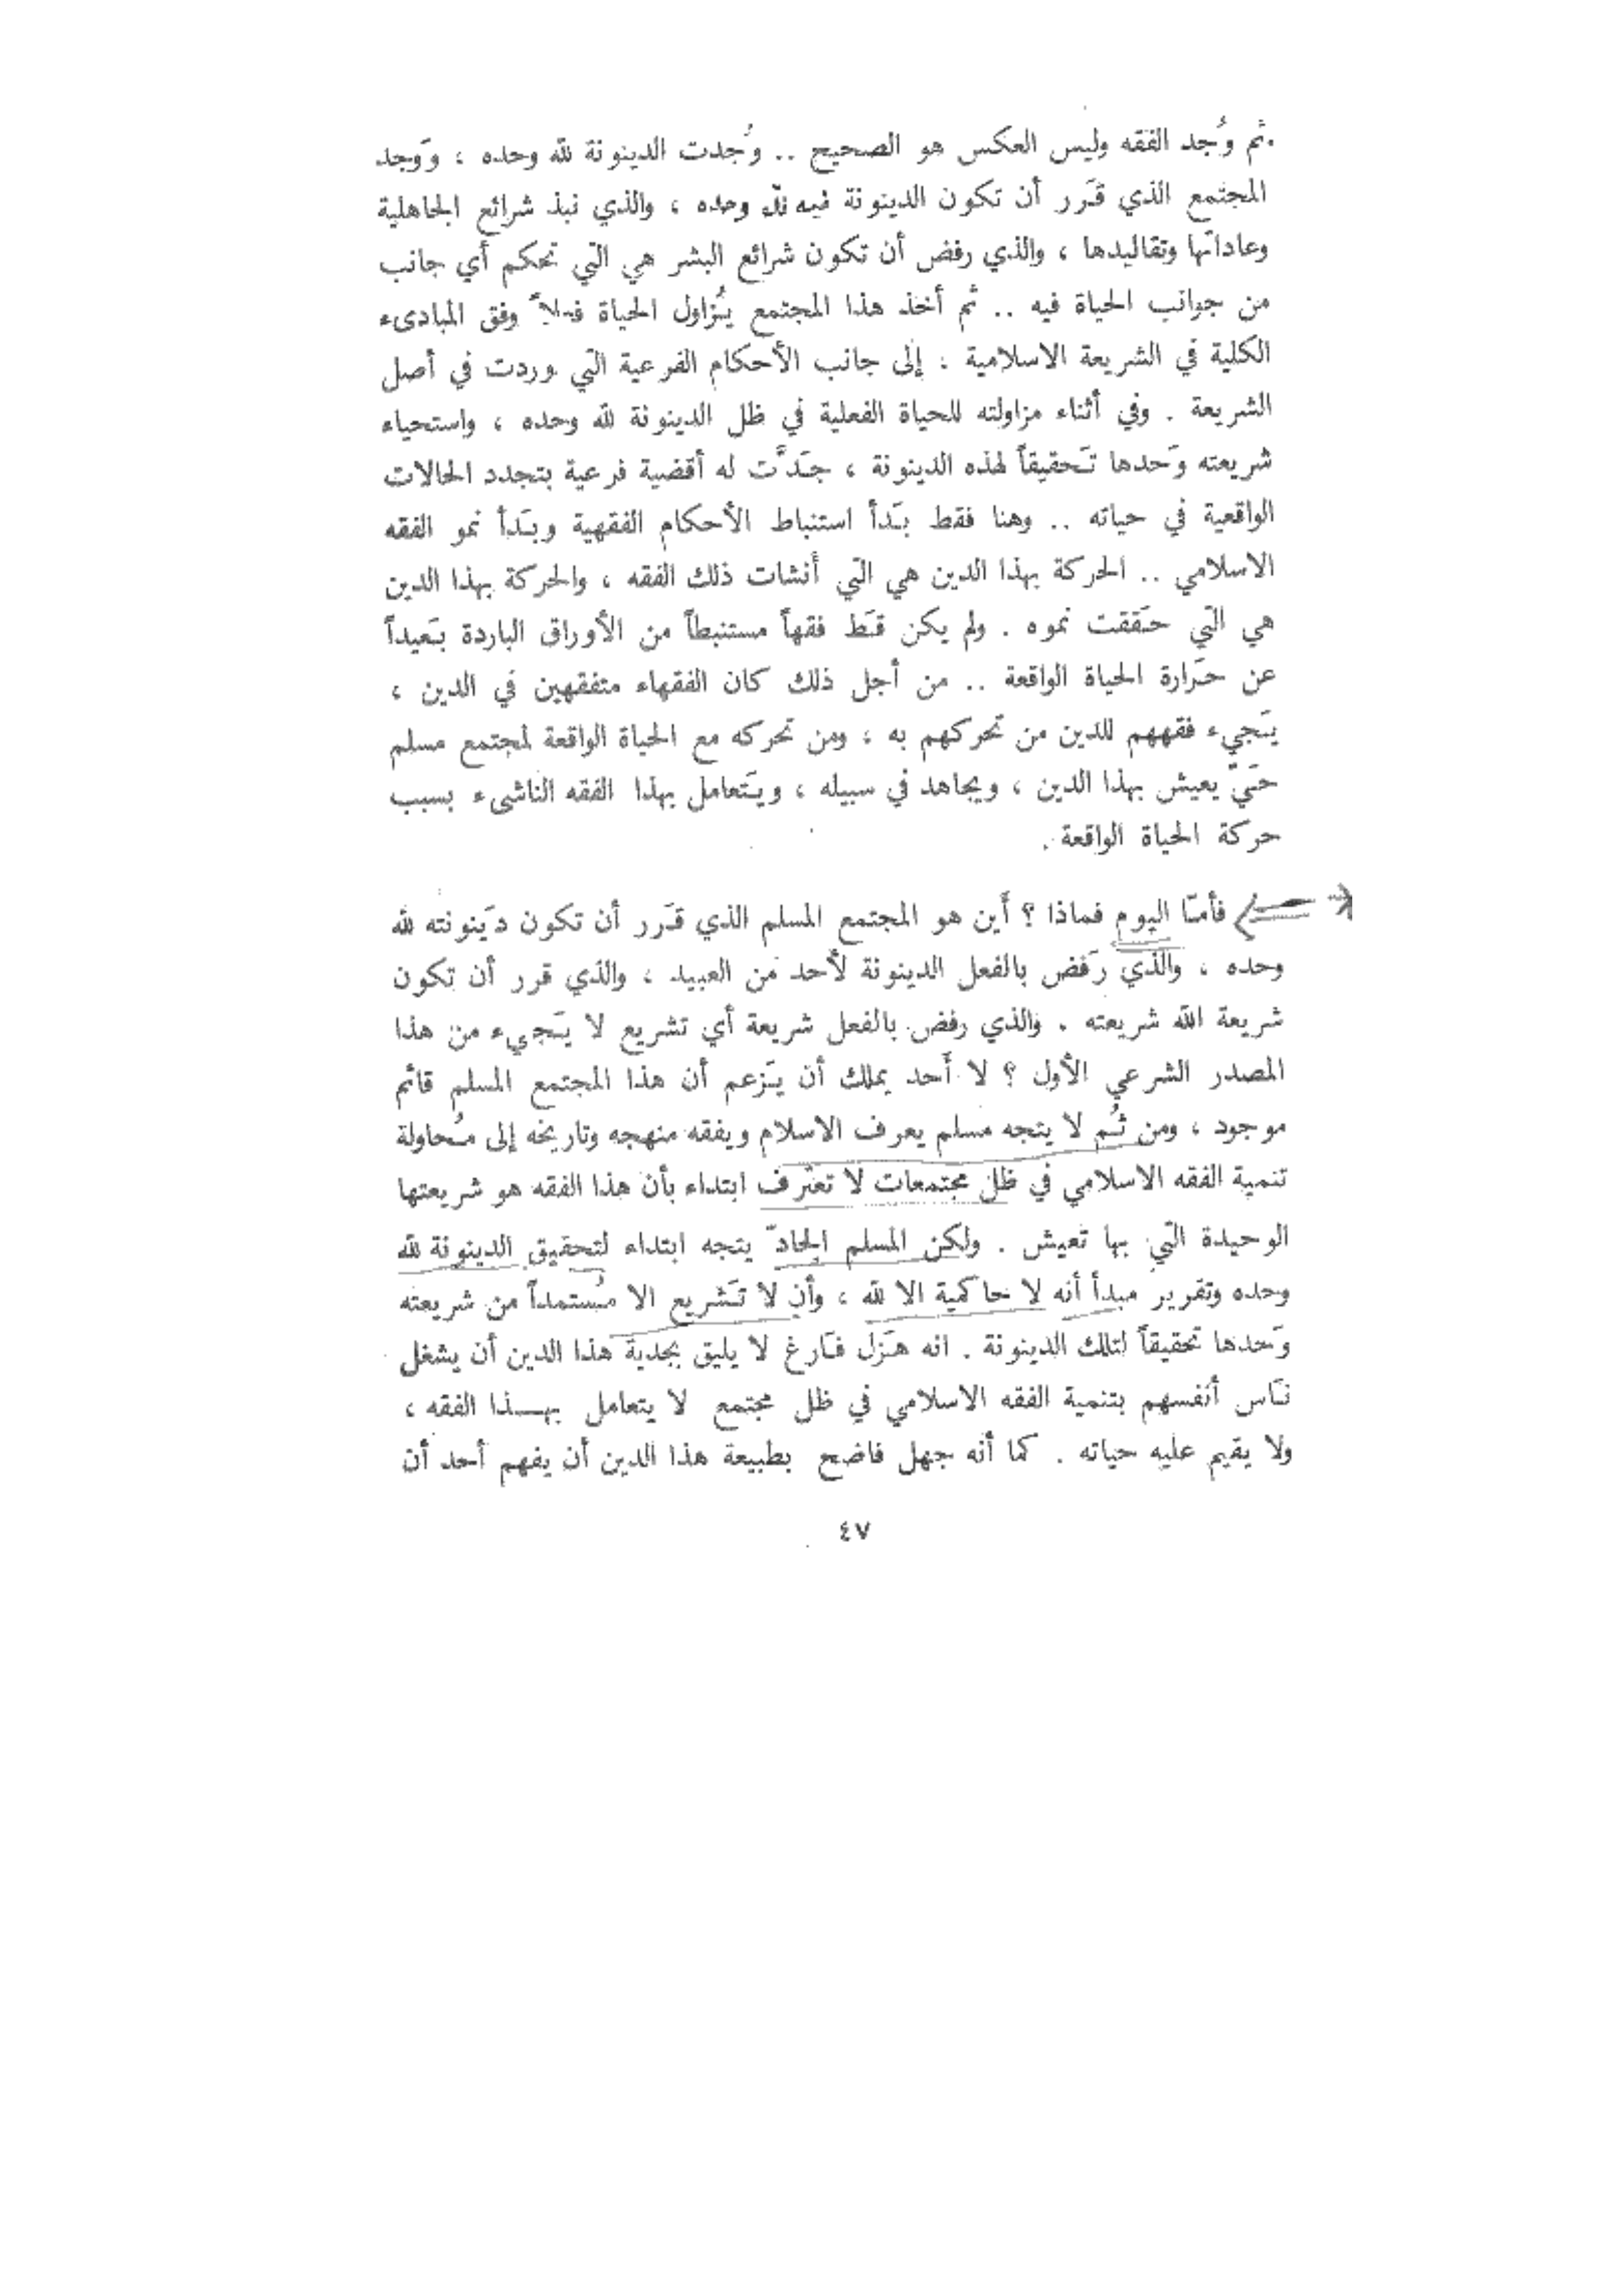 ثم وُجد الفقه وليس العكس هو الصحيح .. وُجدت الدينونة لله وحده ، وَوجد
المجتمع الذي قَرر أن تكون الدينونة فيه لله وحده ، والذي نبذ شرائع الجاهلية
وعاداتها وتقاليدها ، والذي رفض أن تكون شرائع البشر هي التي تحكم أي جانب
من جوانب الحياة فيه .. ثم أخذ هذا المجتمع يُزاول الحياة وفق المبادىء
الكلية في الشريعة الاسلامية : إلى جانب الأحكام الفرعية التي وردت في أصل
الشريعة . وفي أثناء مزاولته للحياة الفعلية في ظل الدينونة لله وحده ، واستحياء
شريعته وَحدها تَحقيقاً لهذه الدينونة ، جَدَّت له أقضية فرعية بتجدد الحالات
الواقعية في حياته .. وهنا فقط بَدأ استنباط الأحكام الفقهية وبَدأ نمو الفقه
الاسلامي .. الحركة بهذا الدين هي التي أنشات ذلك الفقه ، والحركة بهذا الدين
هي التي حَققت نموه . ولم يكن قَط فقهاً مستنبطاً من الأوراق الباردة بَعيداً
عن حَرارة الحياة الواقعة .. من أجل ذلك كان الفقهاء متفقهين في الدين ،
يَجيء فقههم للدين من تحركهم به ، ومن تحركه مع الحياة الواقعة لمجتمع مسلم
حَيّ يعيش بهذا الدين ، ويجاهد في سبيله ، ويَتعامل بهذا الفقه الناشىء بسبب
حركة الحياة الواقعة .
فأمّا اليوم فماذا ؟ أَين هو المجتمع المسلم الذي قَرر أن تكون دَينونته لله
وحده ، والذي رَفض بالفعل الدينونة لأحد من العبيد ، والذي قرر أن تكون
شريعة الله شريعته . والذي رفض بالفعل شريعة أي تشريع لا يَجيء من هذا
المصدر الشرعي الأول ؟ لا أَحد يملك أن يَزعم أن هذا المجتمع المسلم قائم
موجود ، ومن ثُم لا يتجه مسلم يعرف الاسلام ويفقه منهجه وتاريخه إلى مُحاولة
تنمية الفقه الاسلامي في ظل مجتمعات لا تعترف ابتداء بأن هذا الفقه هو شريعتها
الوحيدة التي بها تعيش . ولكن المسلم الجادّ يتجه ابتداء لتحقيق الدينونة لله
وحده وتقرير مبدأ أنه لا حاكمية الا لله ، وأن لا تَشريع الا مُستمداً من شريعته
وَحدها تحقيقاً لتلك الدينونة . انه هَزل فَارغ لا يليق بجدية هذا الدين أن يشغل
نَاس أنفسهم بتنمية الفقه الاسلامي في ظل مجتمع لا يتعامل بهـــذا الفقه ،
ولا يقيم عليه حياته . كما أنه جهل فاضح بطبيعة هذا الدين أن يفهم أحد أن
٤٧